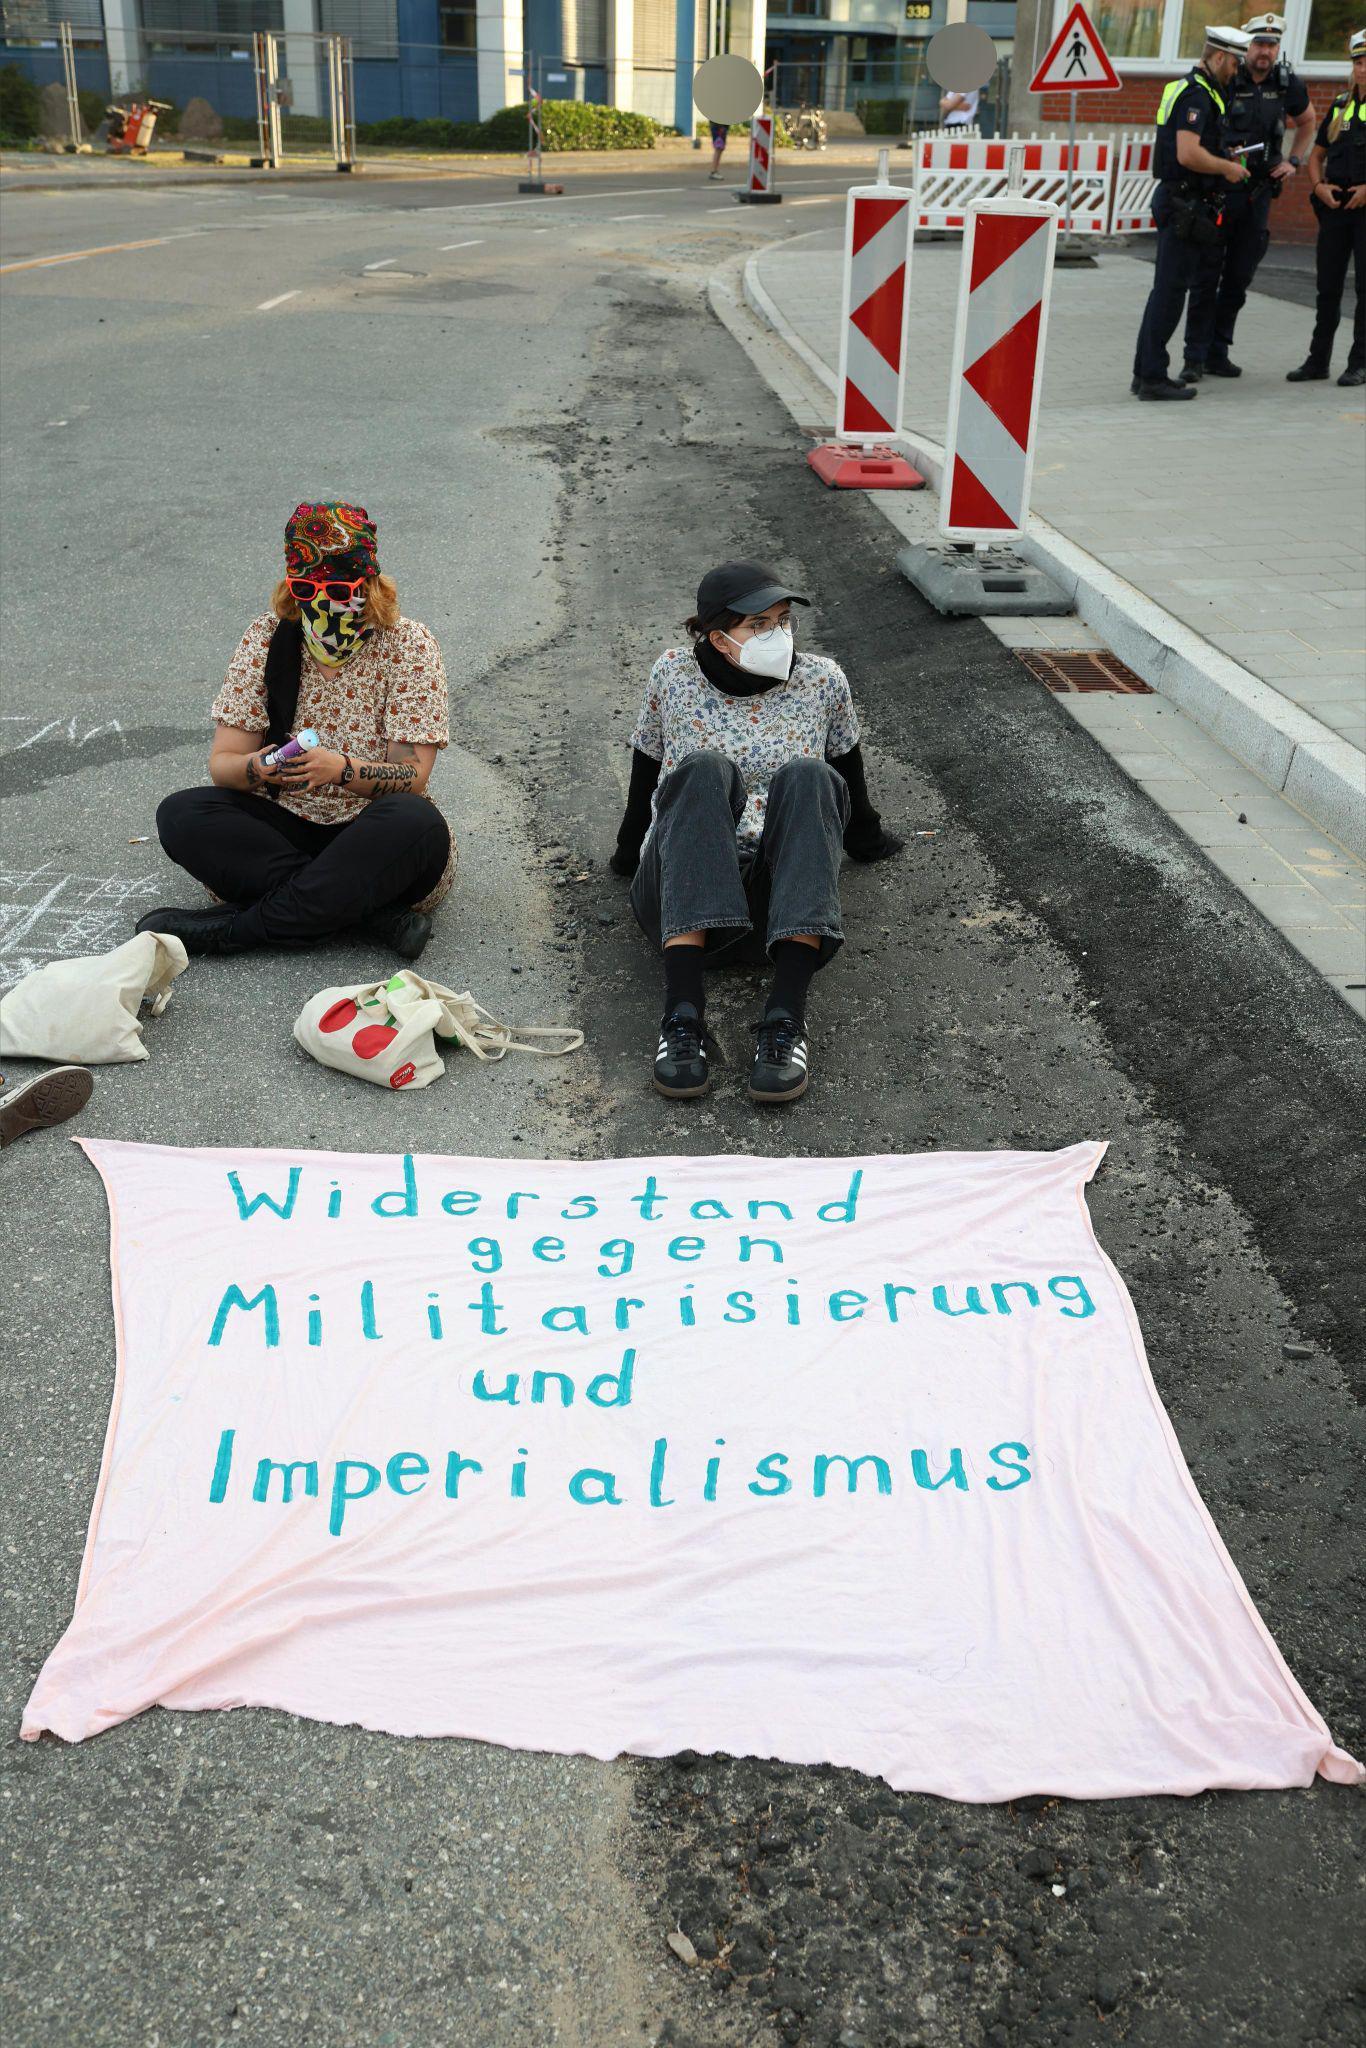 338
POLIZEI
Widerstand
gegen
Militarisierung
und
Imperialismus